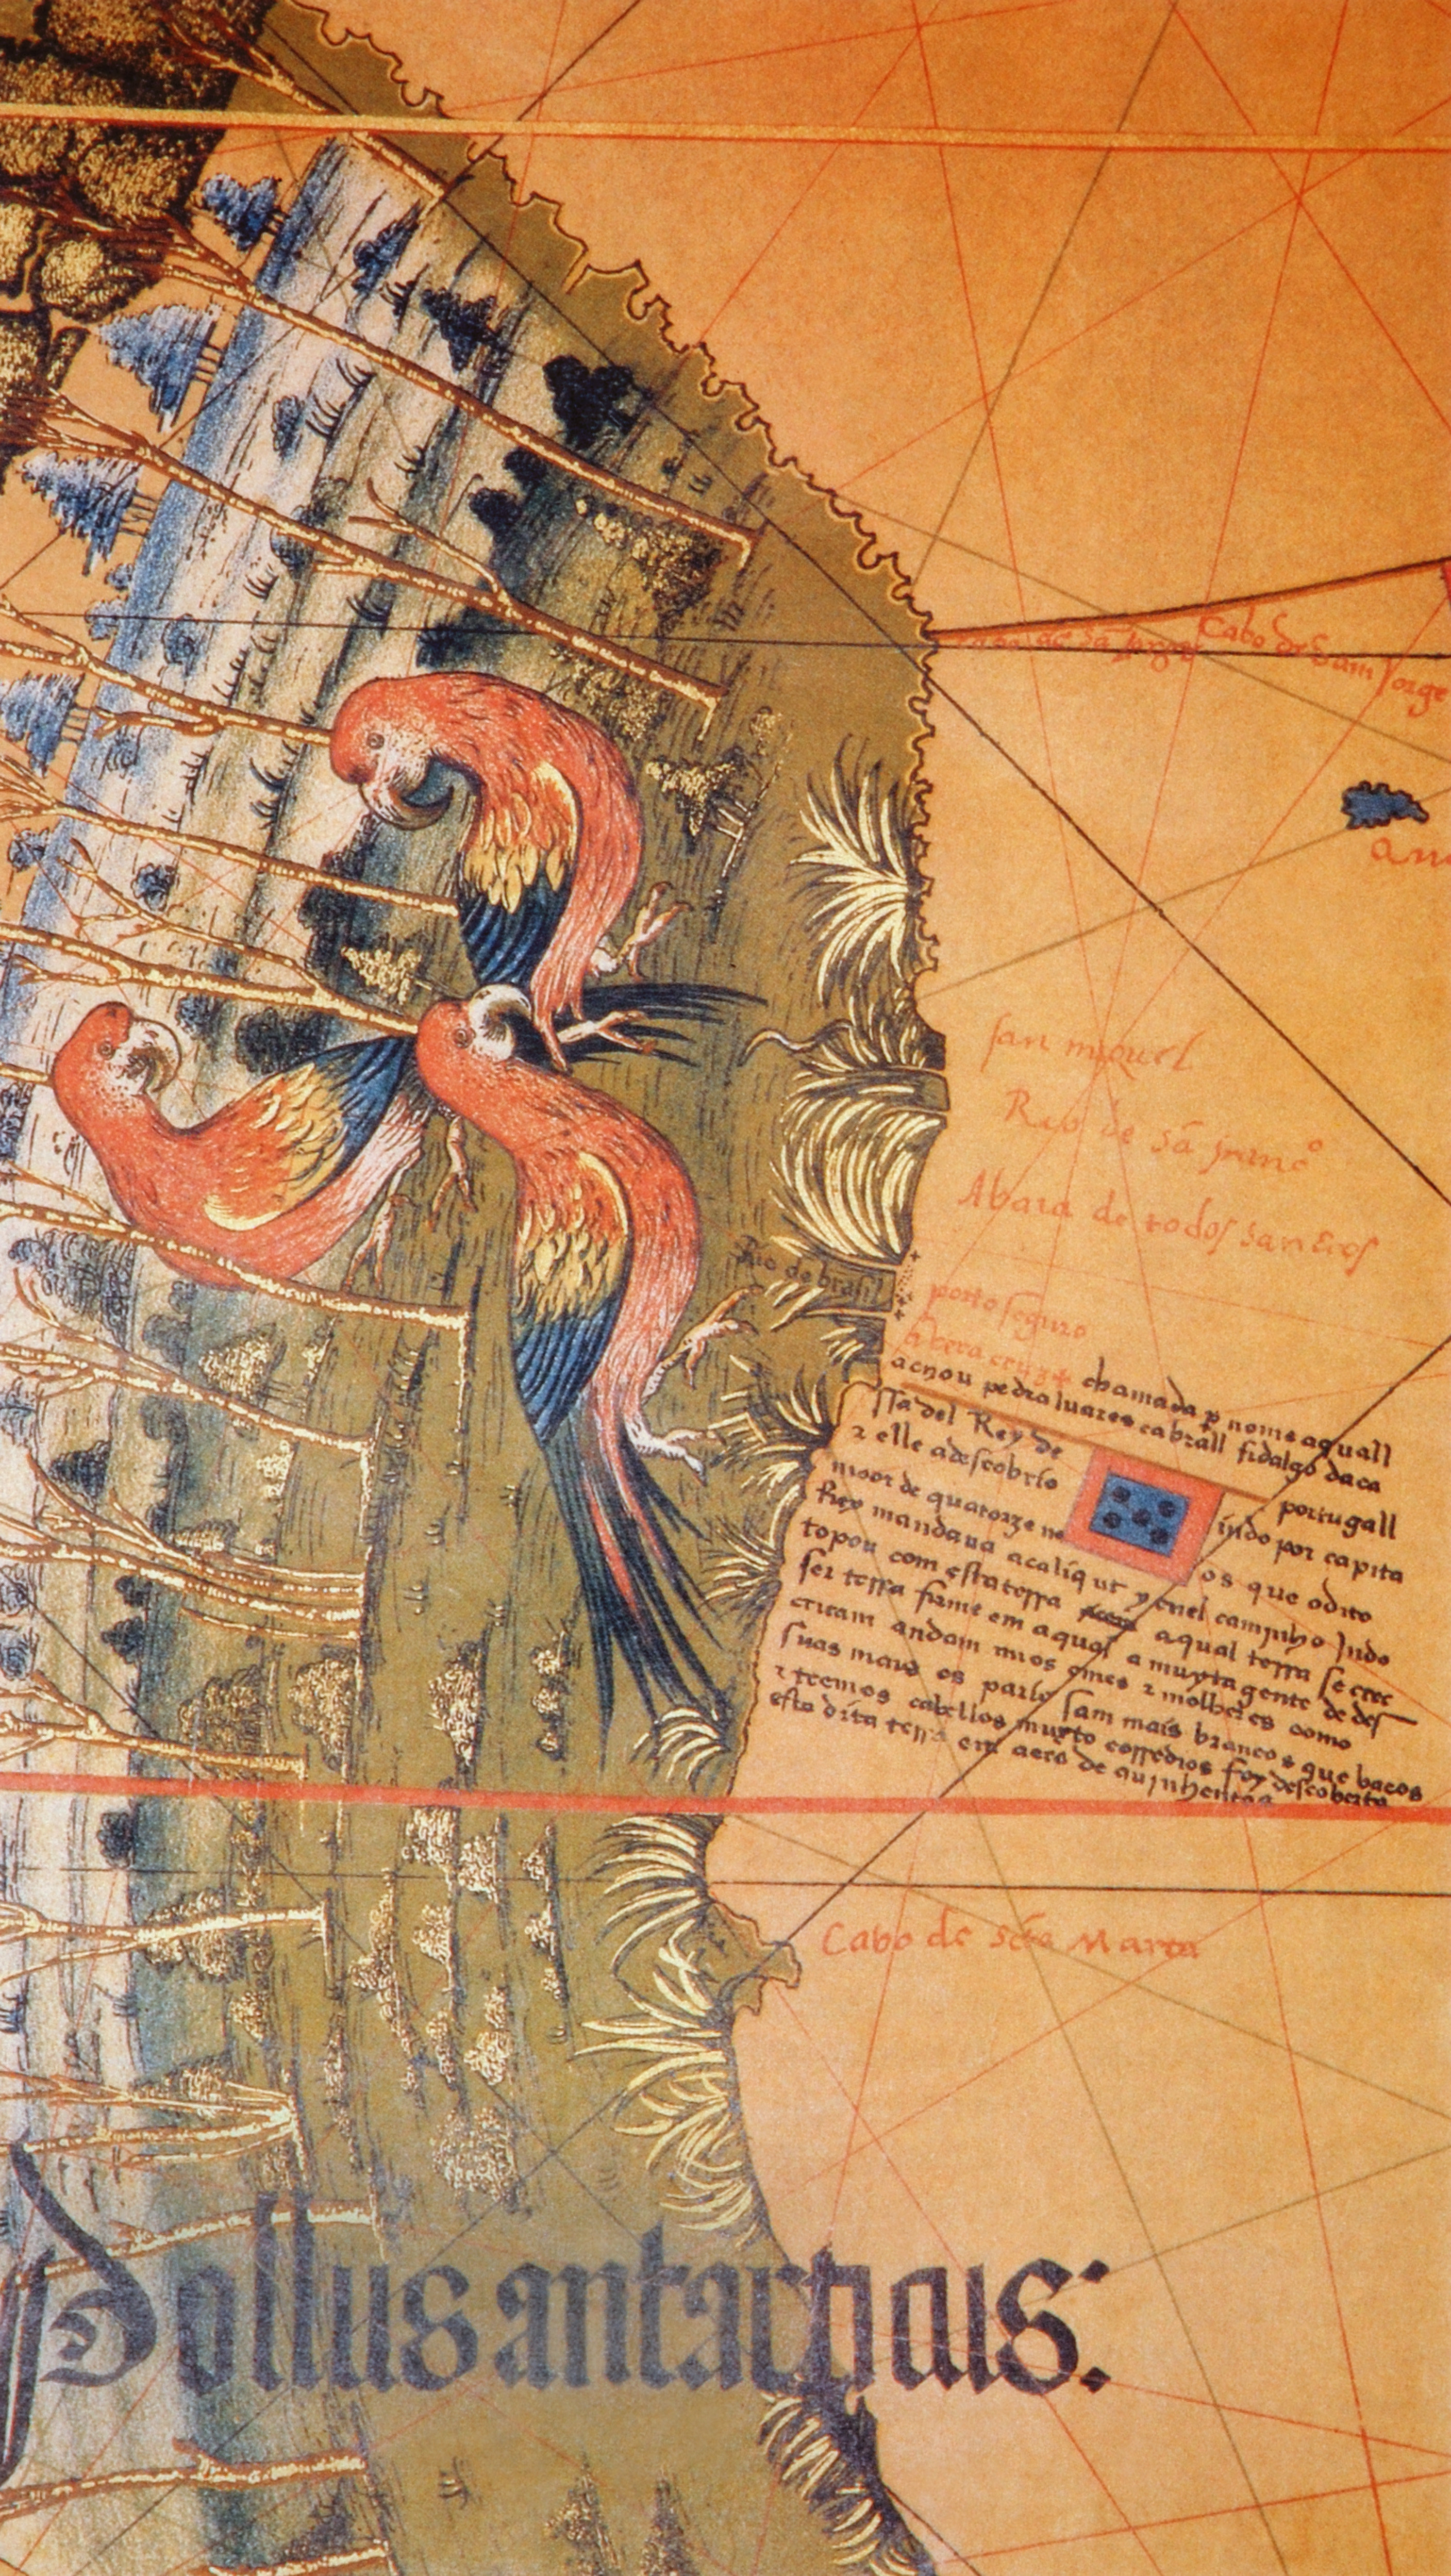 Cabo de sam Jorge
san miguel
Rio de sã
Abaia de todos santos
Rio de brasil
porto seguro
A vera cruz + chamada p nome aquall
achou pedraluares cabrall fidalgo daca
ssa del Rey de portugall
z elle adescobrio indo por capita
moor de quatorze na os que o dito
Rey mandaua acaliqut y enel camynho Indo
topou com esta terra aqual terra se cree
ser terra firme em aqual a muyta gente de des
cricam andam nuos omes z molheres como
suas mais os pario sam mais brancos que bacos
z teemos cabellos muyto corredios foy descoberta
esta dita terra em aera de quinhentos
Cabo de scta Marta
Pollus antarticus: